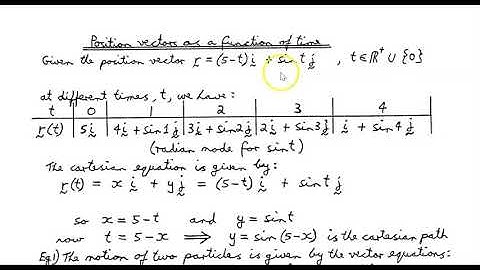 Position vectors as a function of time
Given the position vector r = (5-t)i + sin t j , t ∈ ℝ⁺ ∪ {0}
at different times, t, we have:
t | 0 | 1 | 2 | 3 | 4
r(t) | 5i | 4i + sin1 j | 3i + sin2 j | 2i + sin3 j | i + sin4 j
(radian mode for sin t)
The cartesian equation is given by:
r(t) = x i + y j = (5-t) i + sin t j
so x = 5-t and y = sin t
now t = 5-x ⟹ y = sin (5-x) is the cartesian path
Eg1) The motion of two particles is given by the vector equations: